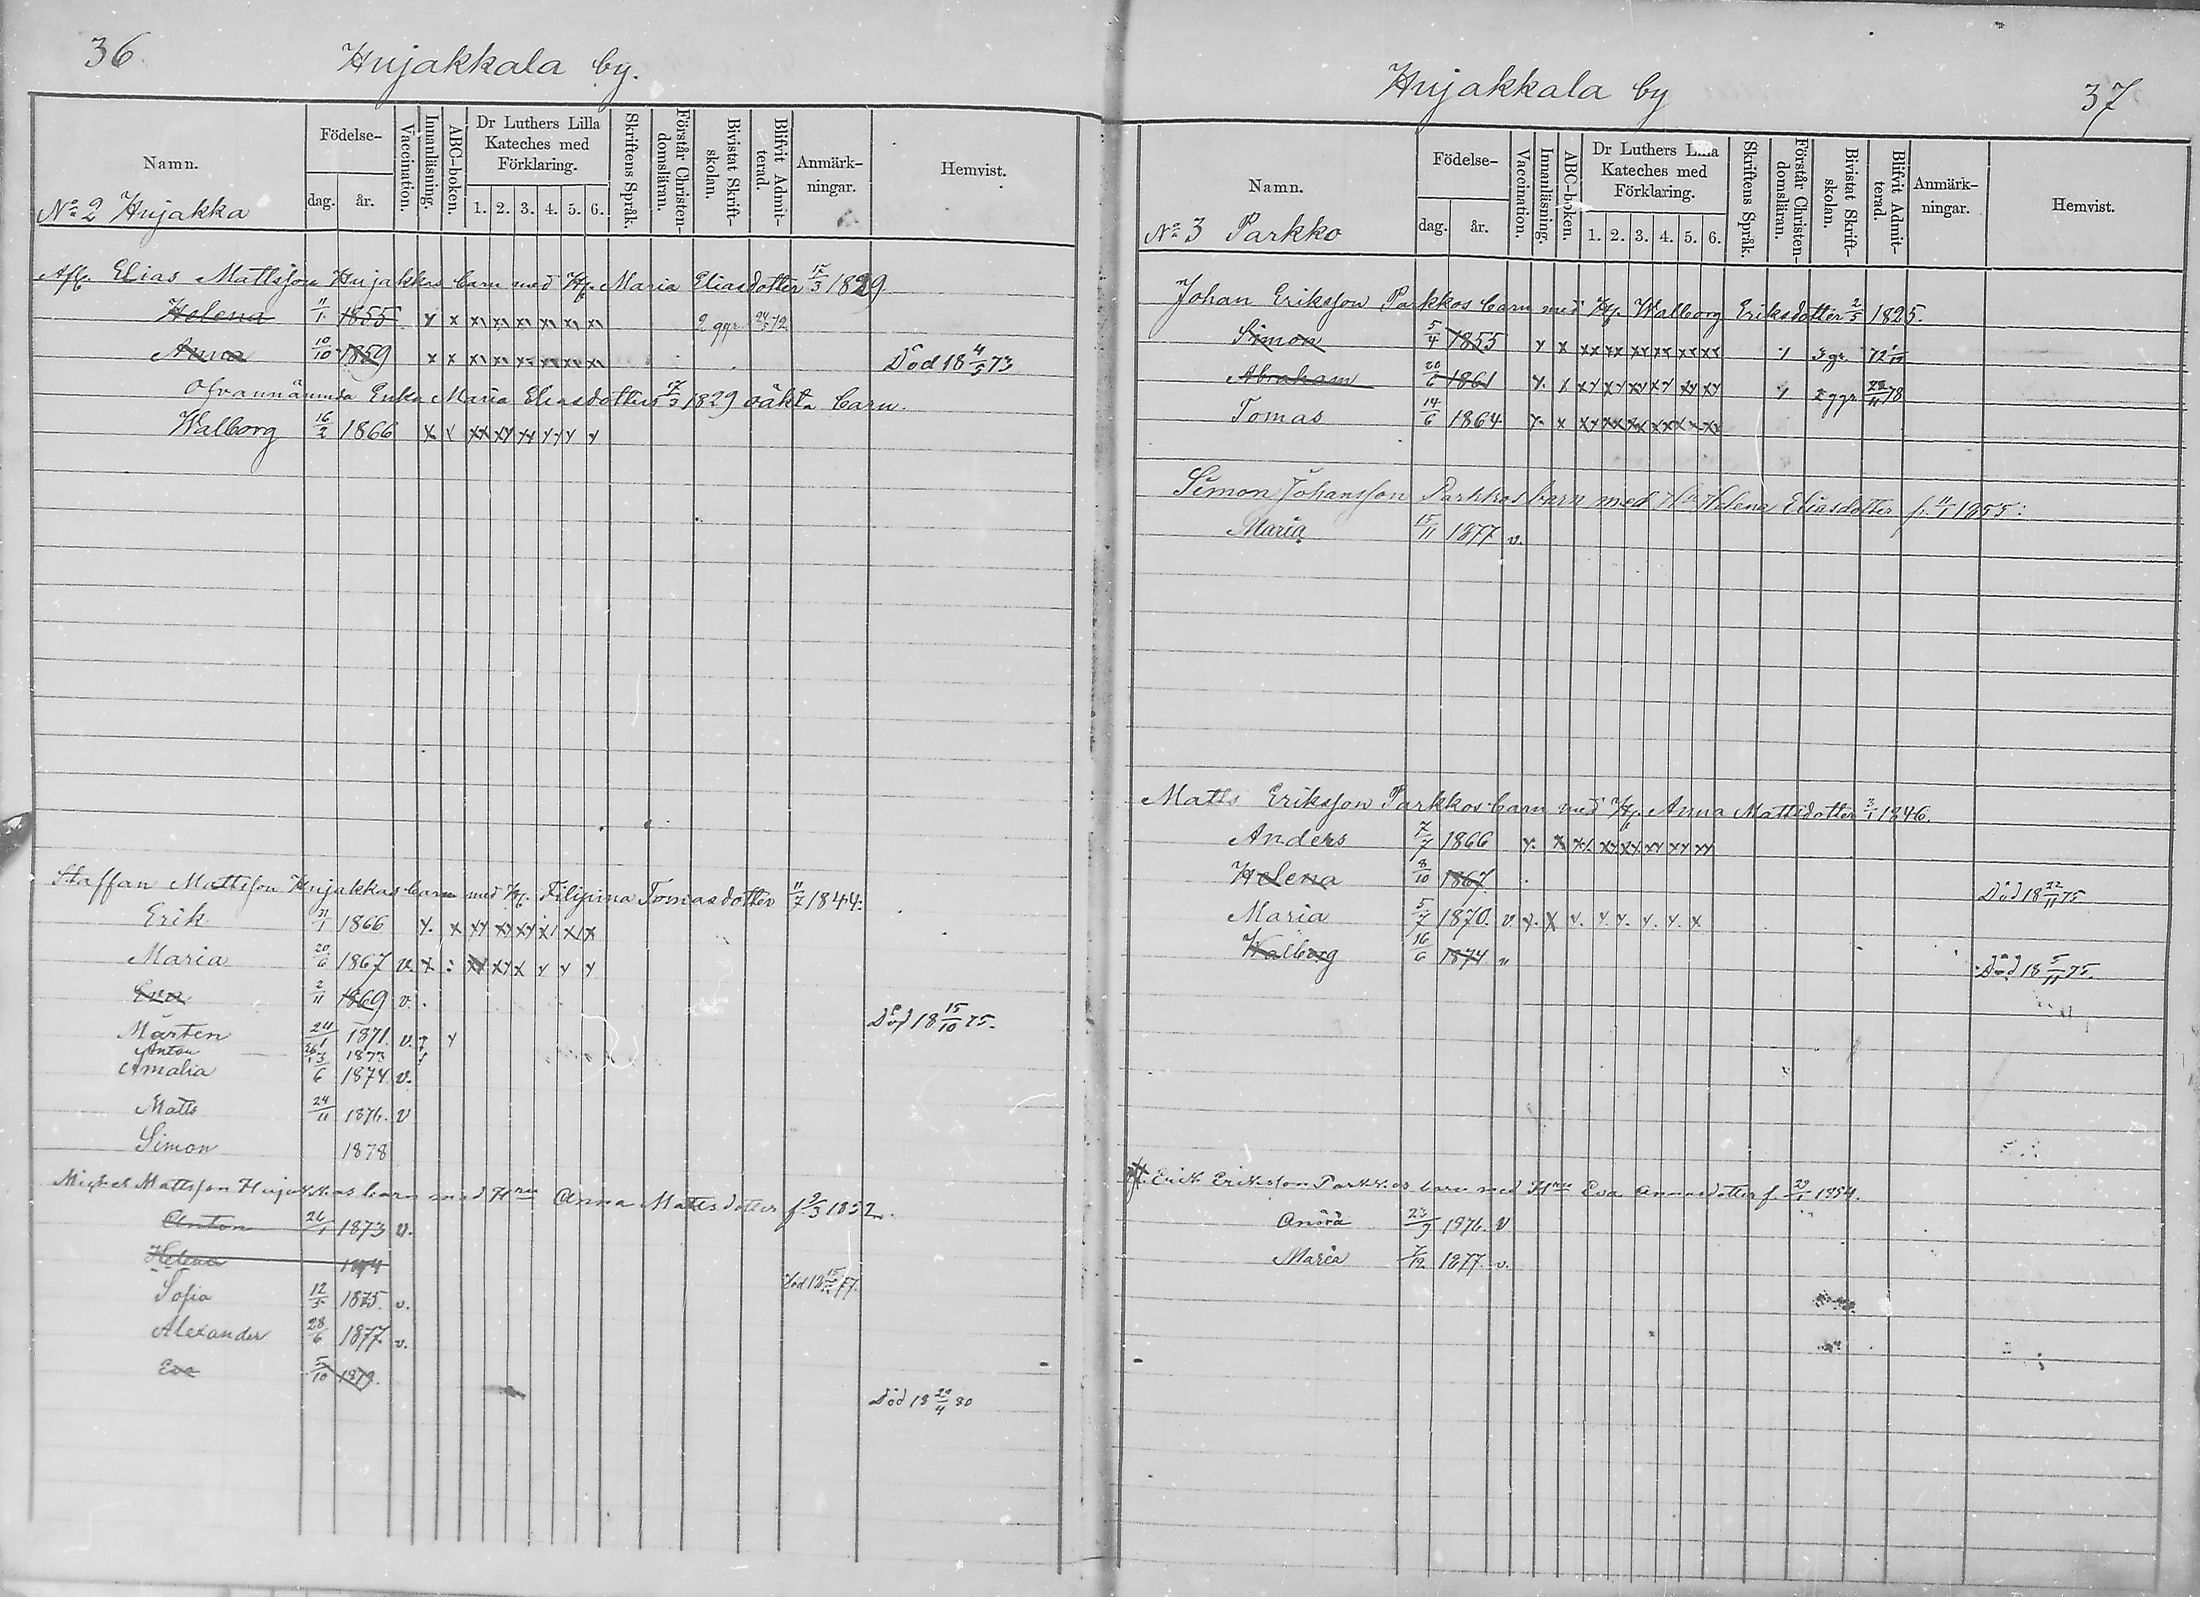 36.
Hujakkala by.
Namn. Födelse- dag. år. Vaccination. Innanläsning. ABC-boken. Dr Luthers Lilla Kateches med Förklaring. 1. 2. 3. 4. 5. 6. Skriftens Språk. Förstår Christen-domsläran. Bivistat Skrift-skolan. Blifvit Admit-terad. Anmärk-ningar. Hemvist.
No 2 Hujakka
Afl. Elias Mattsson Hujakkas barn med H. Maria Eliasdotter 17/3 1829
Helena 11/1 1855 x x xx xx xx xx xx xx 2 ggr 24/5 72
Anna 10/10 1859 x x xx xx xx xx xx xx Död 18 4/5 73
Ofvannämnda Enka Maria Eliasdotters 17/3 1829 oäkta barn.
Walborg 16/2 1866 x x xx xx xx x x x x
Staffan Mattsson Hujakkas barn med H. Filipina Tomasdotter 11/7 1844.
Erik 31/1 1866 x. x xx xx xx xx x
Maria 20/6 1867 v. x xx xx x x x
Eva 2/11 1869 v. Död 18 15/10 75.
Mårten 24/1 1871. v.
Anton 26/1 1873
Amalia 3/6 1874 v.
Matts 24/11 1876. v
Simon 1878
Michel Mattsson Hujakkas barn med Hru Anna Mattsdotter f 2/3 1852.
Anton 26/1 1873 v.
Helena 1874 Död 18 15 77.
Sofia 12/5 1875. v.
Alexander 28/6 1877. v.
Eva 5/10 1879. Död 18 29/4 80
Hujakkala by
37
Namn. Födelse- dag. år. Vaccination. Innanläsning. ABC-boken. Dr Luthers Lilla Kateches med Förklaring. 1. 2. 3. 4. 5. 6. Skriftens Språk. Förstår Christen-domsläran. Bivistat Skrift-skolan. Blifvit Admit-terad. Anmärk-ningar. Hemvist.
No 3 Parkko
Johan Eriksson Parkkos barn med H. Walborg Eriksdotter 2/5 1825.
Simon 5/4 1855 x x xx xx xx xx xx xx 3 gr. 72
Abraham 20/6 1861 x. x xx xx xx xx xx 2 ggr 78
Tomas 14/6 1864 x. x xx xx xx xx x xx
Simon Johansson Parkkos barn med H. Helena Eliasdotter f. 11/1 1855.
Maria 15/11 1877 v.
Matts Eriksson Parkkos barn med H. Anna Mattsdotter 3/1 1846.
Anders 7/7 1866 x. x x x. xx xx xx xx xx
Helena 8/10 1867. Död 18 22/11 75
Maria 5/7 1870. v x. x x. x x. x. x. x
Walborg 16/6 1874 " Död 18 5/11 75.
Erik Eriksson Parkkos barn med Hru Eva Annasdotter f 29/1 1854.
Anna 23/9 1876. v
Maria 7/12 1877. v.